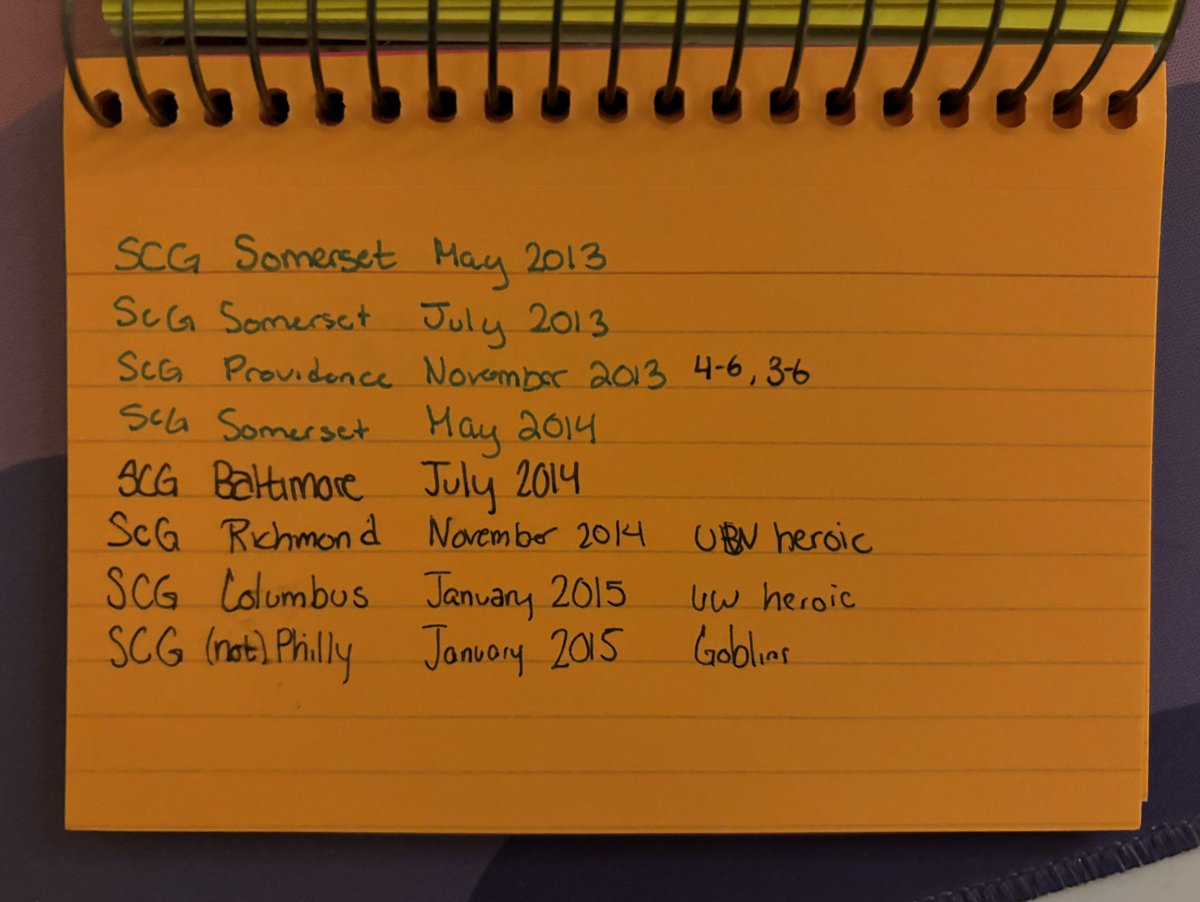 SCG Somerset May 2013
SCG Somerset July 2013
SCG Providence November 2013 4-6, 3-6
SCG Somerset May 2014
SCG Baltimore July 2014
SCG Richmond November 2014 heroic
SCG Columbus January 2015 UW heroic
SCG (not) Philly January 2015 Goblins